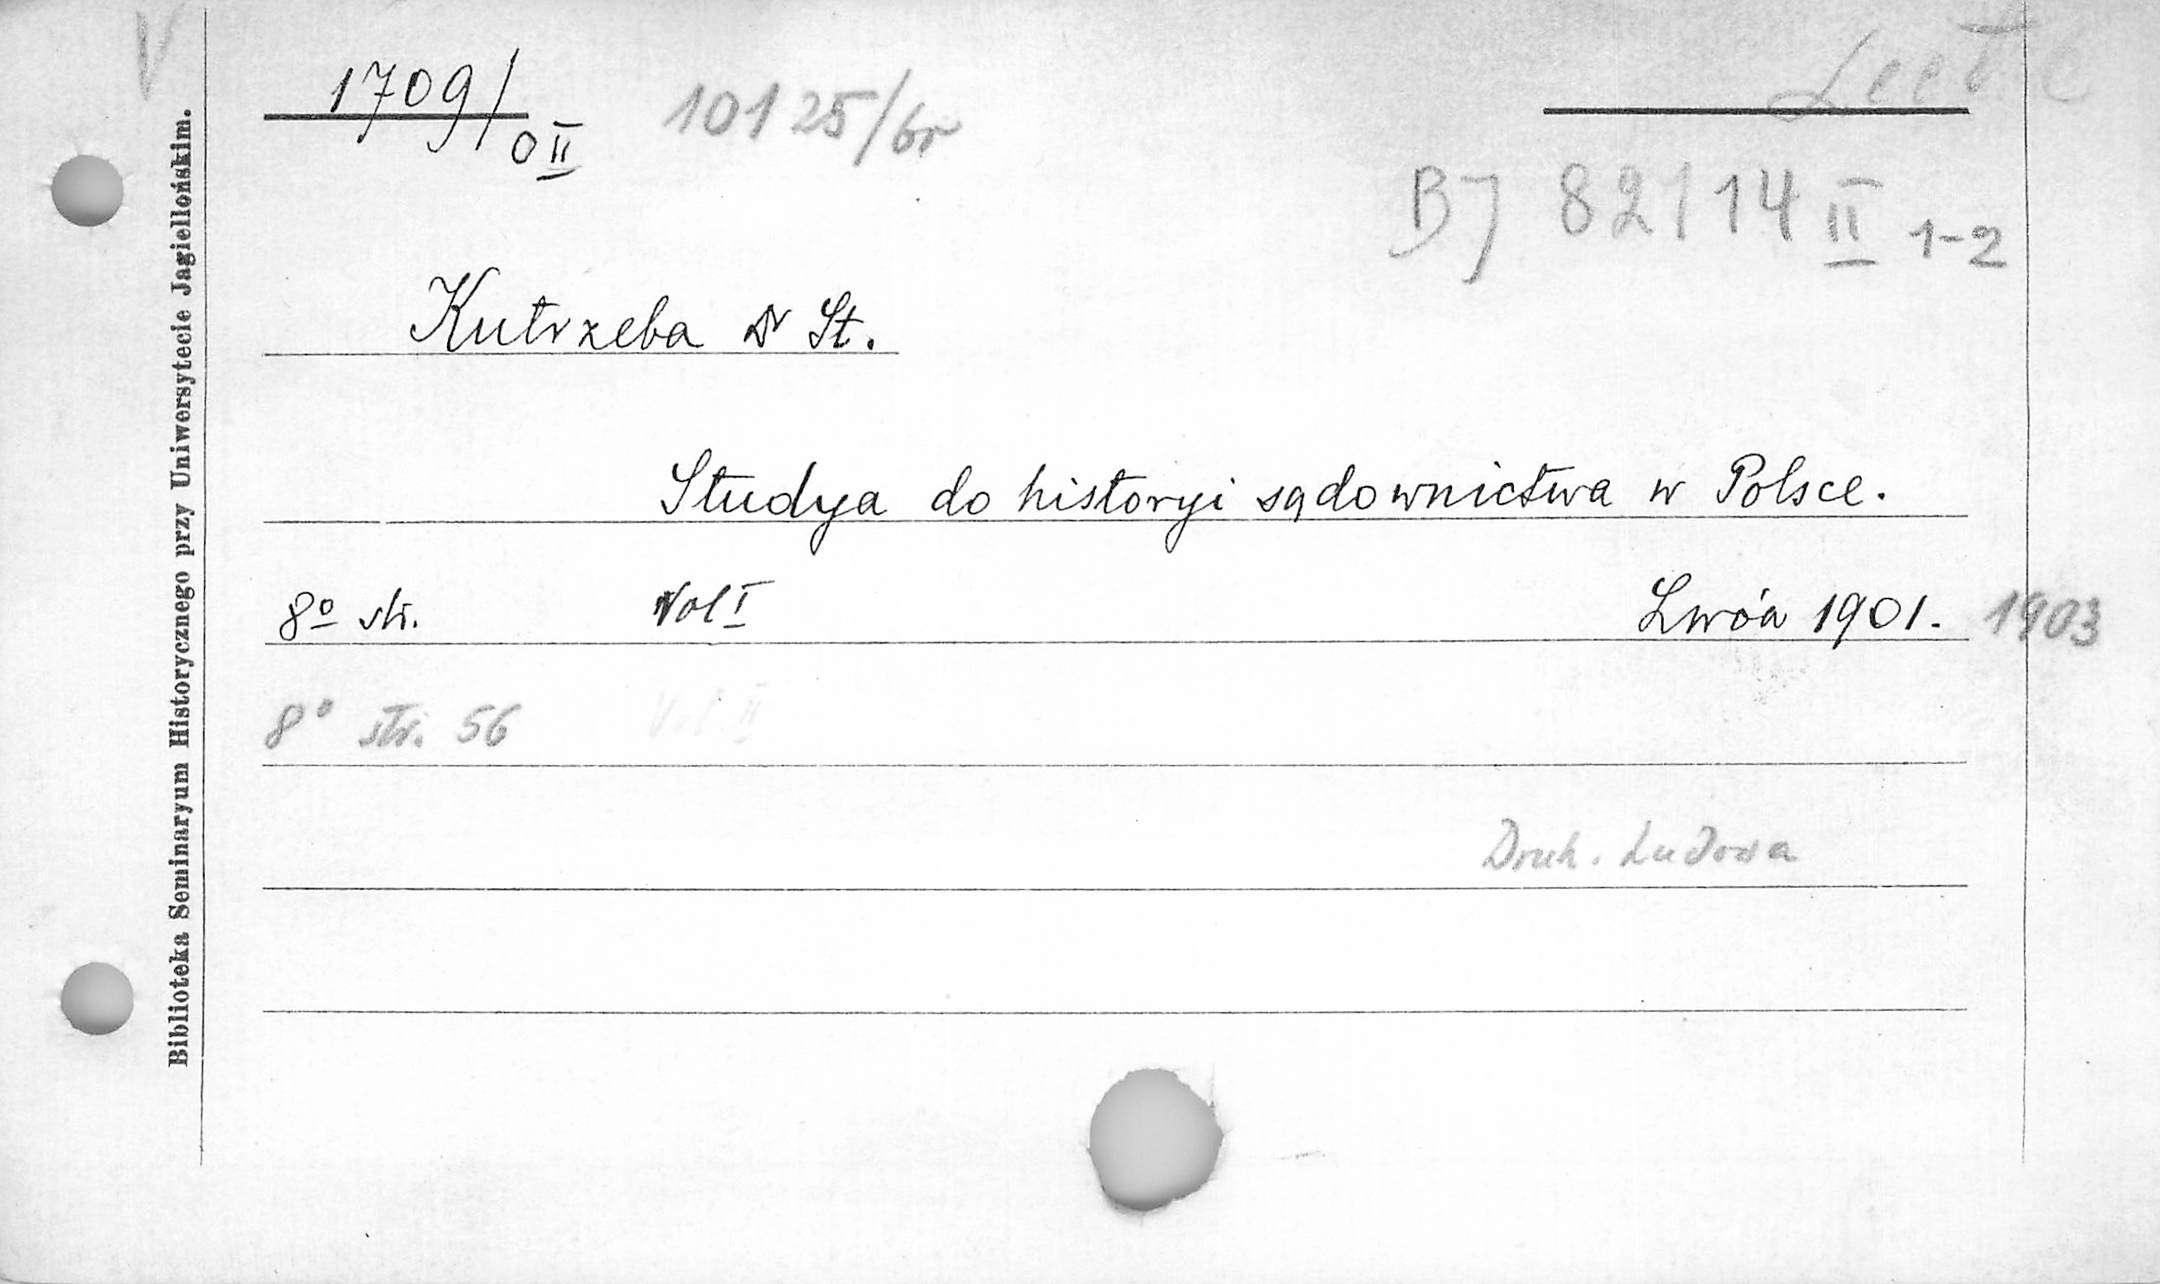 V
1709/OII 10125/br
BJ 82/14 II 1-2
Kutrzeba Dr St.
Studya do historyi sądownictwa w Polsce.
8o str. Vol I Lwów 1901. 1903
8o str. 56 Vol. II
Druk. Ludowa
Biblioteka Seminaryum Historycznego przy Uniwersytecie Jagiellońskim.